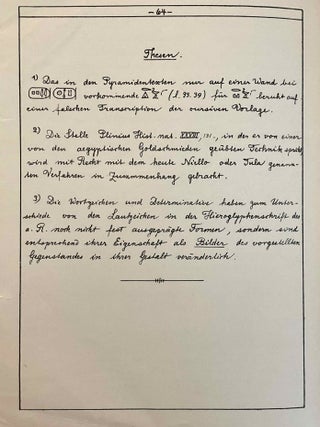 — 64 —
Thesen.
1) Das in den Pyramidentexten nur auf einer Wand bei
vorkommende (l. 33. 39) für beruht auf
einer falschen Transcription der cursiven Vorlage.
2) Die Stelle Plinius Hist. nat. XXXIII, 131., in der er von einer
von den aegyptischen Goldschmieden geübten Technik spricht
wird mit Recht mit dem heute Niello oder Tula genann-
ten Verfahren in Zusammenhang gebracht.
3) Die Wortzeichen und Determinative haben zum Unter-
schiede von den Lautzeichen in der Hieroglyphenschrift des
a. R. noch nicht fest ausgeprägte Formen, sondern sind
entsprechend ihrer Eigenschaft als Bilder des vorgestellten
Gegenstandes in ihrer Gestalt veränderlich.